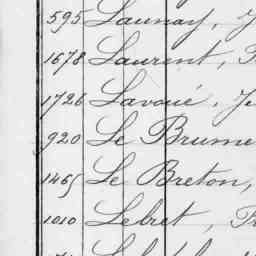 595 Launay, J
1678 Laurent, F
1726 Lavoué, Je
920 Le Brume
1465 Le Breton,
1010 Lebret, Fr